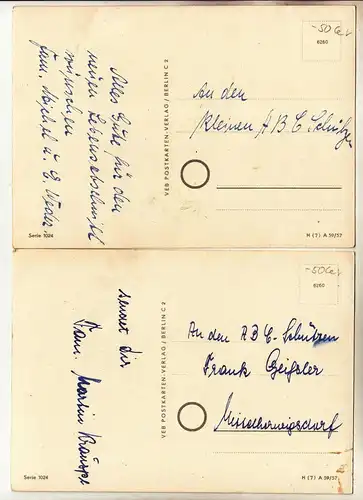 Alles Gute für den
neuen Lebensabschnitt
wünschen
Fam.
VEB POSTKARTEN-VERLAG / BERLIN C 2
-50
6260
An den
kleinen A B C Schützen
Serie 1024
H (7) A 59/57
sendet dir
Fam. Martin
VEB POSTKARTEN-VERLAG / BERLIN C 2
-50
6260
An den A B C - Schützen
Frank Geißler
Mittelherwigsdorf
Serie 1024
H (7) A 59/57